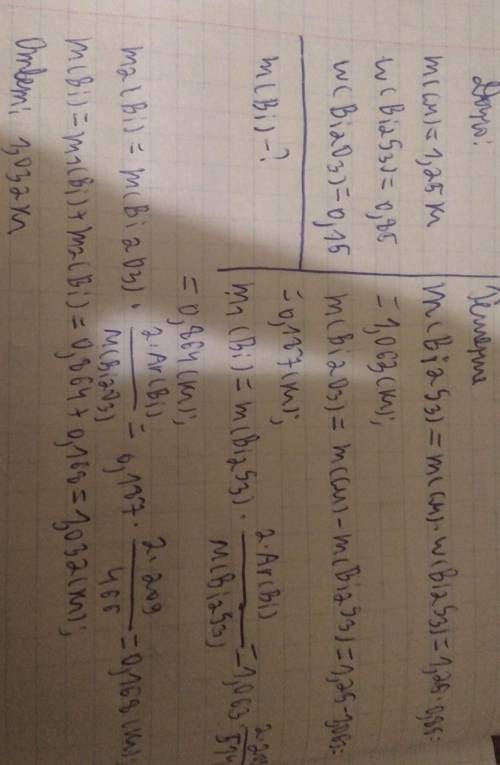 Дано:
m(см) = 1,25 т
w(Bi2S3) = 0,85
w(Bi2O3) = 0,15
m(Bi) - ?
Решение
m(Bi2S3) = m(см) · w(Bi2S3) = 1,25 · 0,85 =
= 1,063 (т);
m(Bi2O3) = m(см) - m(Bi2S3) = 1,25 - 1,063 =
= 0,187 (т);
m1(Bi) = m(Bi2S3) · 2·Ar(Bi) / M(Bi2S3) = 1,063 · 2·209 / 514
= 0,864 (т);
m2(Bi) = m(Bi2O3) · 2·Ar(Bi) / M(Bi2O3) = 0,187 · 2·209 / 466 = 0,168 (т);
m(Bi) = m1(Bi) + m2(Bi) = 0,864 + 0,168 = 1,032 (т);
Ответ: 1,032 т